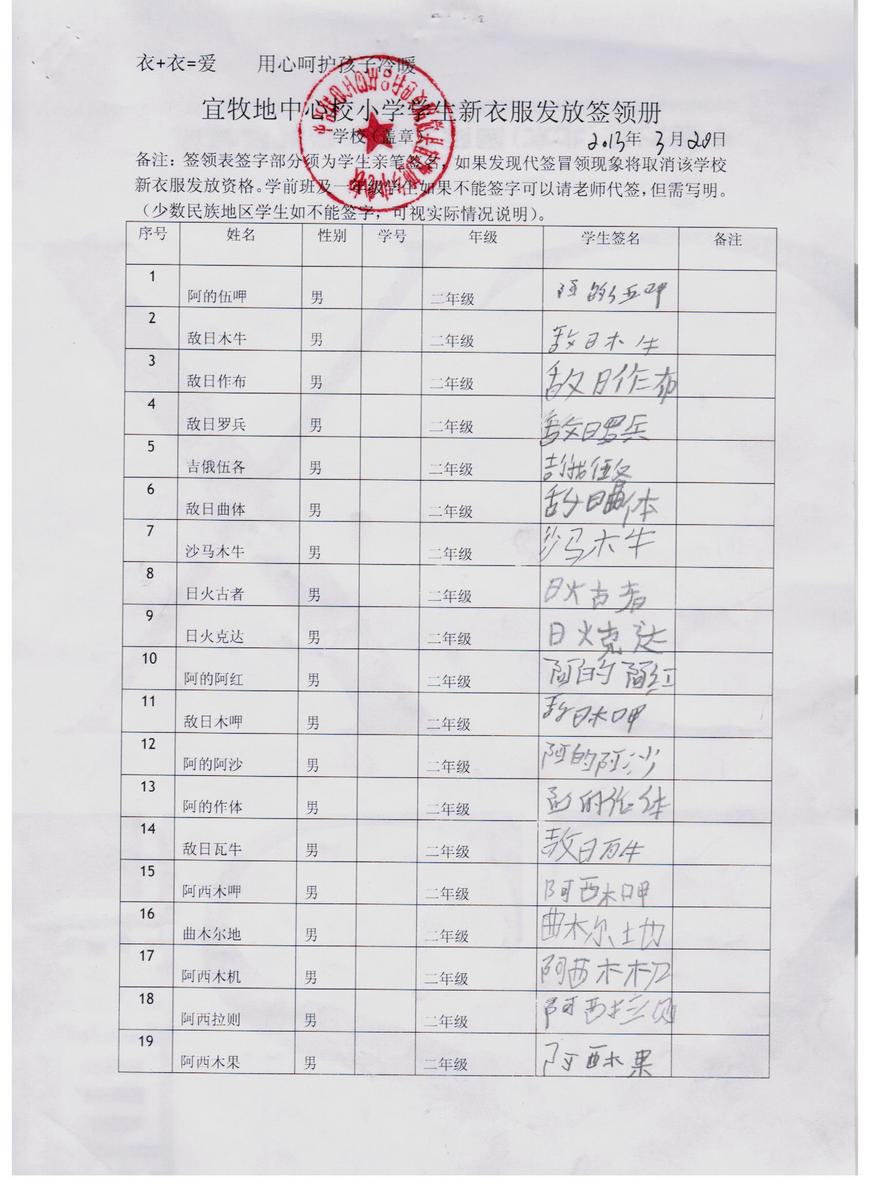 衣+衣=爱 用心呵护孩子冷暖
宜牧地中心校小学学生新衣服发放签领册
学校（盖章） 2013年 3月20日
备注：签领表签字部分须为学生亲笔签名，如果发现代签冒领现象将取消该学校
新衣服发放资格。学前班及一年级学生如果不能签字可以请老师代签，但需写明。
（少数民族地区学生如不能签字，可视实际情况说明）。
序号 姓名 性别 学号 年级 学生签名 备注
1 阿的伍呷 男 二年级 阿的伍呷
2 敌日木牛 男 二年级 敌日木牛
3 敌日作布 男 二年级 敌日作布
4 敌日罗兵 男 二年级 敌日罗兵
5 吉俄伍各 男 二年级 吉俄伍各
6 敌日曲体 男 二年级 敌日曲体
7 沙马木牛 男 二年级 沙马木牛
8 日火古者 男 二年级 日火古者
9 日火克达 男 二年级 日火克达
10 阿的阿红 男 二年级 阿的阿红
11 敌日木呷 男 二年级 敌日木呷
12 阿的阿沙 男 二年级 阿的阿沙
13 阿的作体 男 二年级 阿的作体
14 敌日瓦牛 男 二年级 敌日瓦牛
15 阿西木呷 男 二年级 阿西木呷
16 曲木尔地 男 二年级 曲木尔地
17 阿西木机 男 二年级 阿西木机
18 阿西拉则 男 二年级 阿西拉则
19 阿西木果 男 二年级 阿西木果